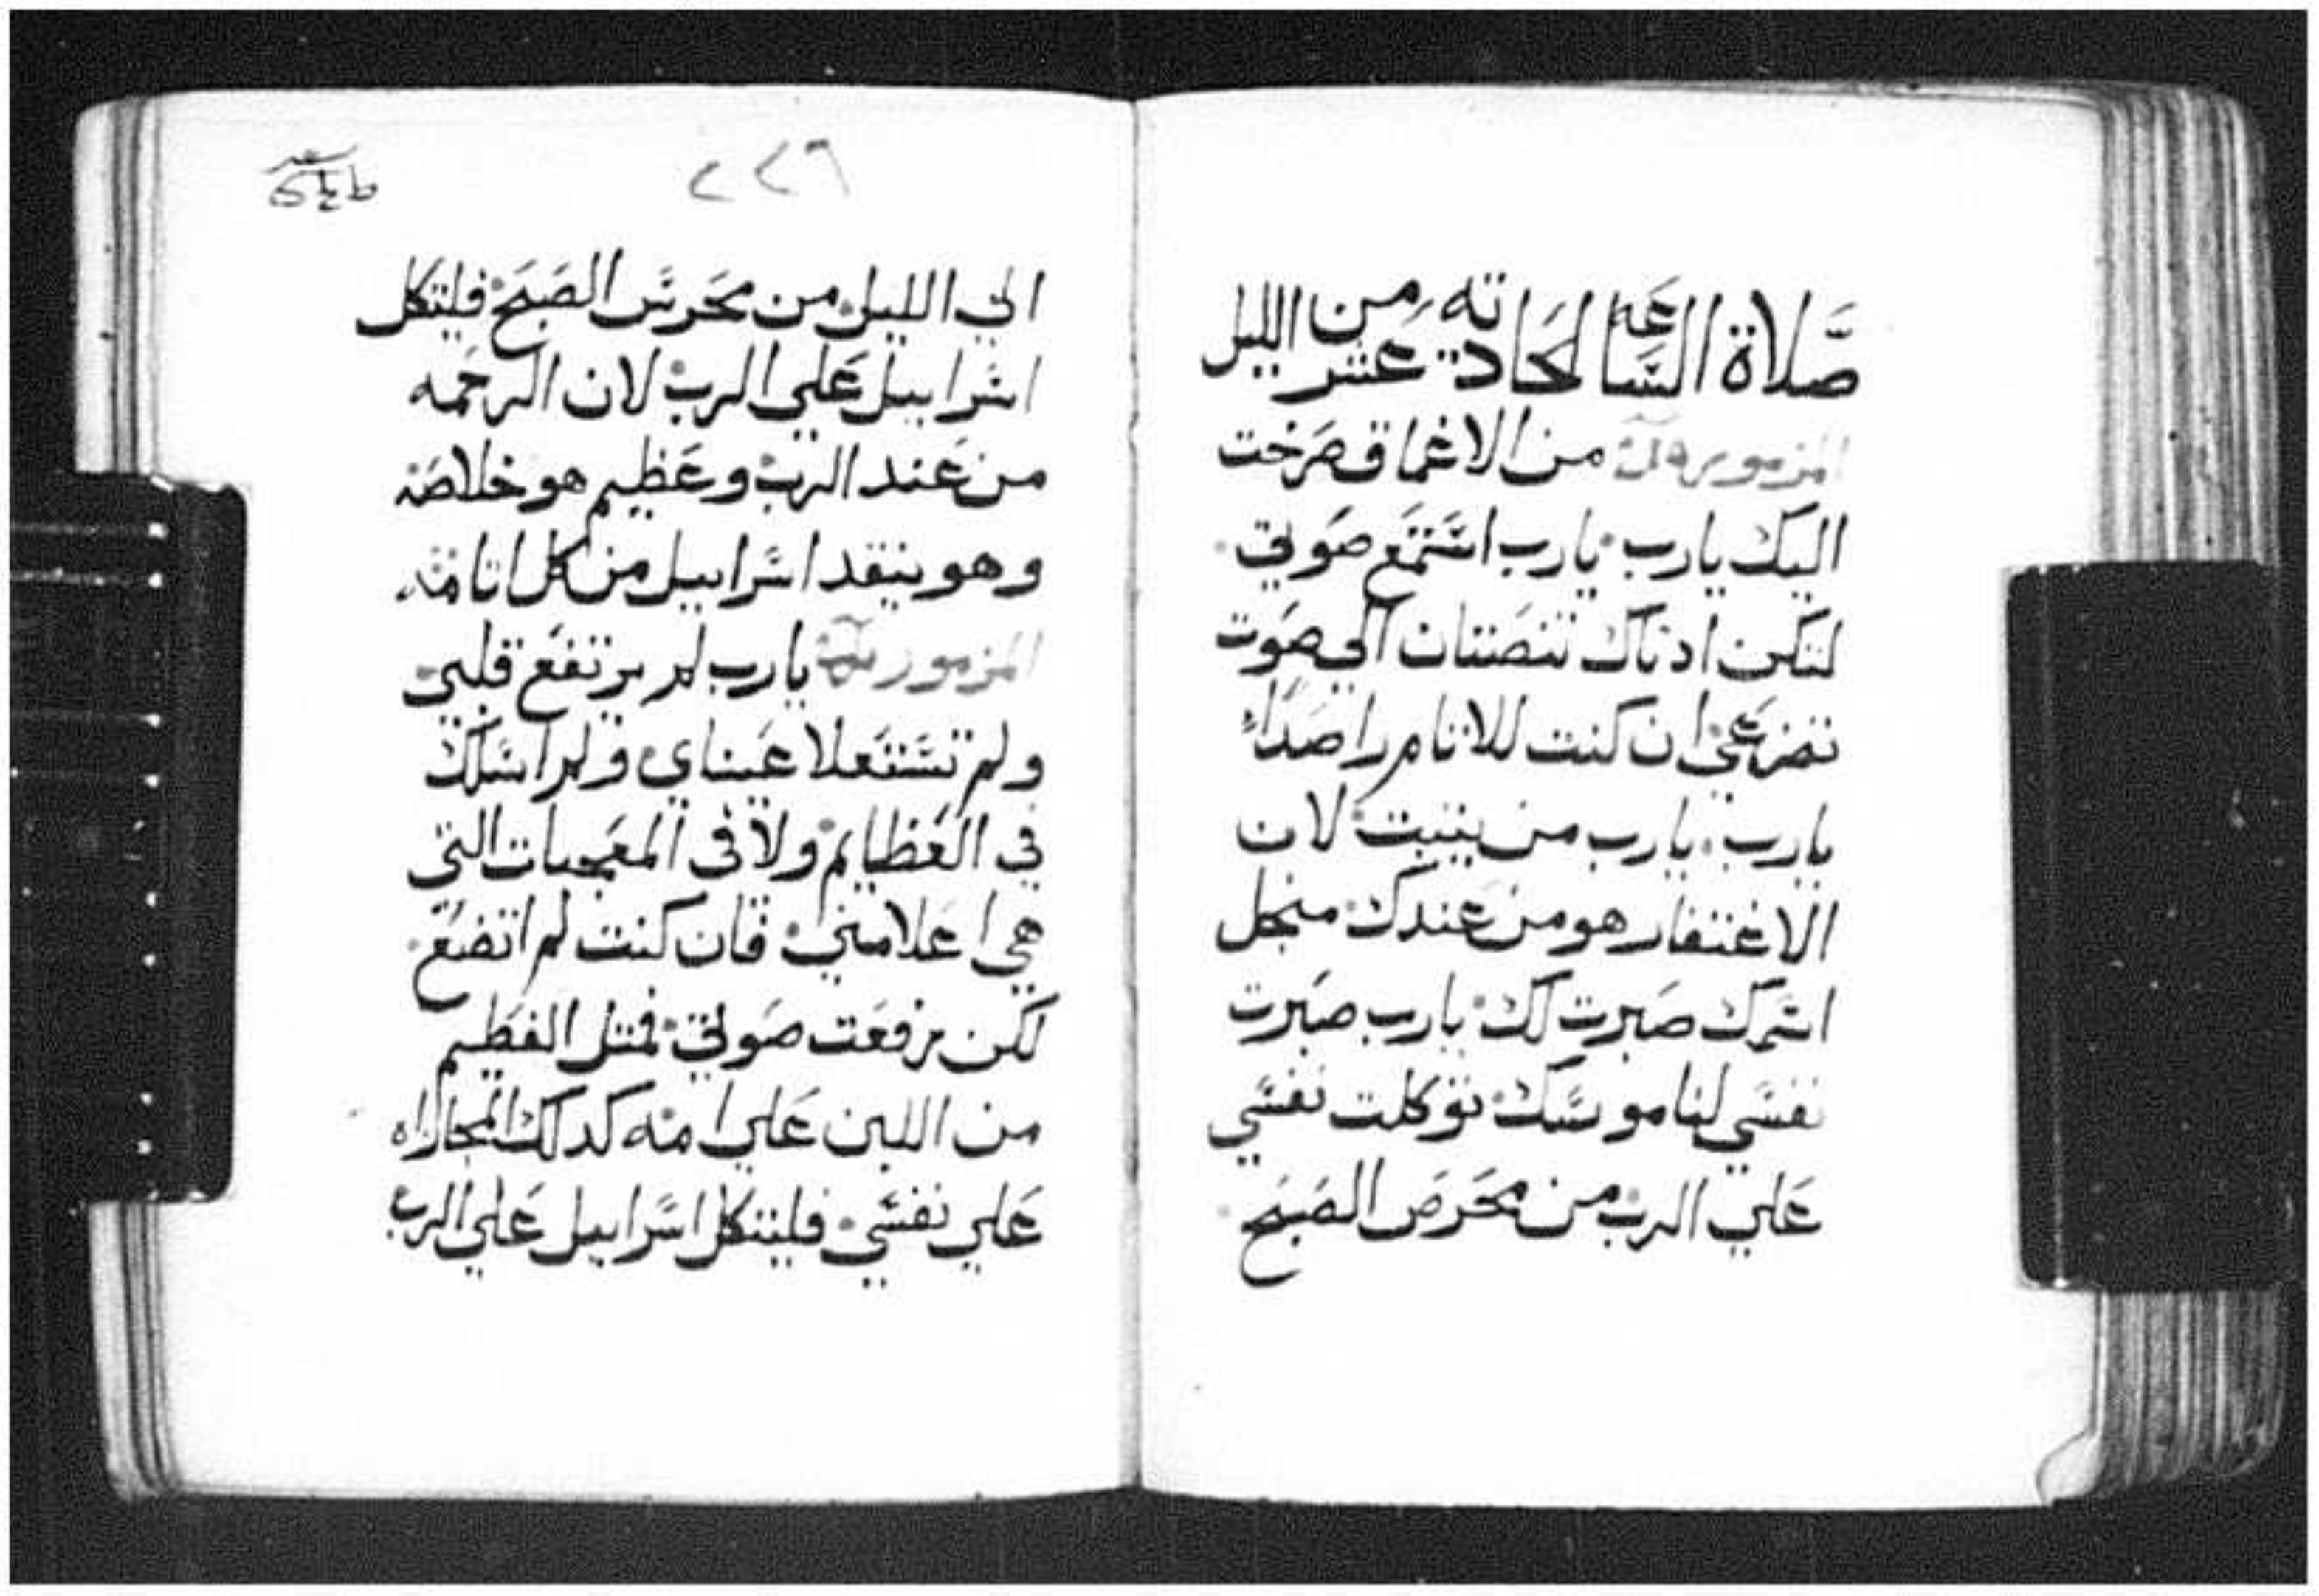 صلاة الساعه الحادية عشر من الليل
المزمور من الاعماق صرخت
اليك يارب يارب استمع صوتي
لتكن ادناك تنصتتان الي صوت
تضرعي ان كنت للاتام راصداً
يارب يارب من يثبت لان
الاغتفار هو من عندك منجل
اسمك صبرت لك يارب صبرت
نفسي لناموسك توكلت نفسي
علي الرب من محرص الصبح
٢٢٦
الي الليل من محرس الصبح فليتكل
اسراييل علي الرب لان الرحمه
من عند الرب وعظيم هو خلاصه
وهو ينقد اسراييل من كل اتامه
المزمور يارب لم يرتفع قلبي
ولم تستعلا عيناي ولم اسلك
في العظايم ولا في المعجبات التي
هي اعلا مني فان كنت لم اتضع
لكن رفعت صوتي فمتل الفطيم
من اللبن علي امه كدلك المجازاه
علي نفسي فليتكل اسراييل علي الرب